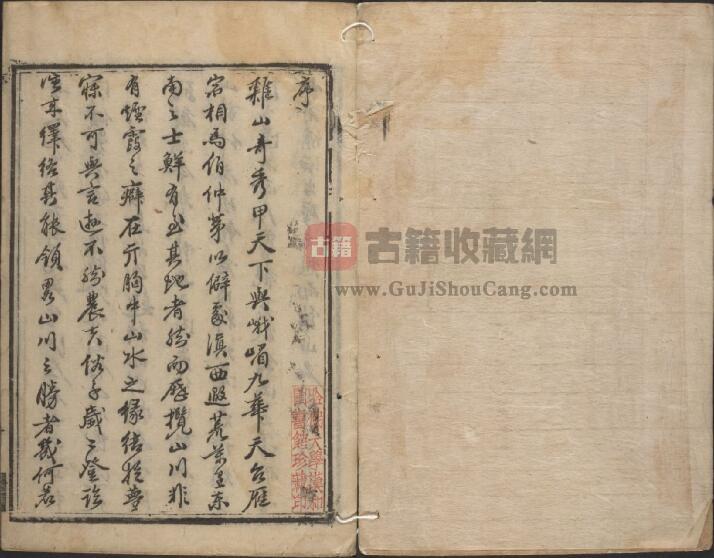 序
雞山奇秀甲天下與峨嵋九華天台雁
宕相為伯仲第以僻處滇西遐荒萬里東
南之士鮮有至其地者然而歷攬山川非
有煙霞之癖在于胸中山水之緣結於夢
寐不可與言遊不然農夫俗子歲々登臨
往来繹絡其能領畧山川之勝者幾何
哈佛大學漢和
圖書館珍藏印
古籍
古籍收藏網
www.GuJiShouCang.com